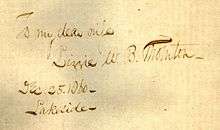 To my dear wife
Lizzie W. B. Thornton—
Dec 25. 1860—
Lakeside—